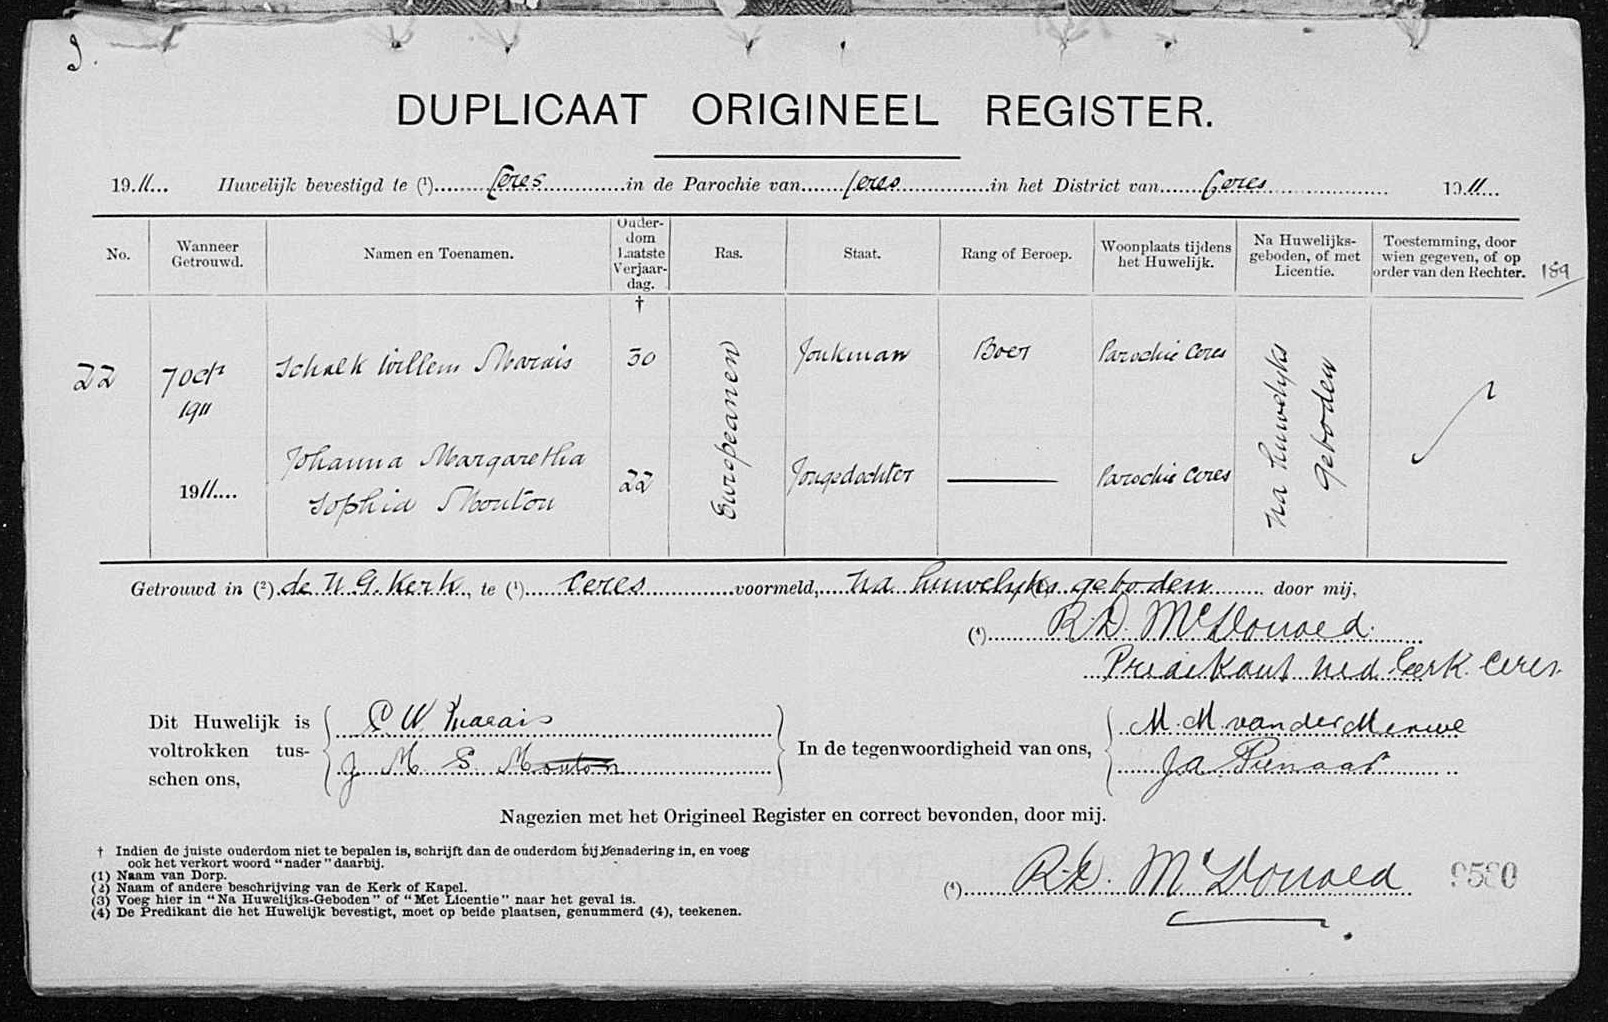 9.
DUPLICAAT ORIGINEEL REGISTER.
1911... Huwelijk bevestigd te (1) Ceres in de Parochie van Ceres in het District van Ceres 1911
No. Wanneer Getrouwd. Namen en Toenamen. Ouderdom Laatste Verjaardag. Ras. Staat. Rang of Beroep. Woonplaats tijdens het Huwelijk. Na Huwelijks-geboden, of met Licentie. Toestemming, door wien gegeven, of op order van den Rechter.
189
†
22 7 Oct 1911 Schalk Willem Marais 30 Europeanen Jonkman Boer Parochie Ceres Na huwelyks geboden
1911.... Johanna Margaretha Sophia Mouton 22 Jongedochter Parochie Ceres
Getrouwd in (2) de N. G. Kerk, te (1) Ceres voormeld, na huwelyks geboden door mij,
(4) R.D. McDonald
Predikant Ned. Gerk. Ceres.
Dit Huwelijk is voltrokken tusschen ons,
S. W. Marais
J M S Mouton
In de tegenwoordigheid van ons,
M. M. van der Merwe
J A Pienaar
Nagezien met het Origineel Register en correct bevonden, door mij.
† Indien de juiste ouderdom niet te bepalen is, schrijft dan de ouderdom bij benadering in, en voeg
ook het verkort woord "nader" daarbij.
(1) Naam van Dorp.
(2) Naam of andere beschrijving van de Kerk of Kapel.
(3) Voeg hier in "Na Huwelijks-Geboden" of "Met Licentie" naar het geval is.
(4) De Predikant die het Huwelijk bevestigt, moet op beide plaatsen, genummerd (4), teekenen.
(4) R.D. McDonald
9580